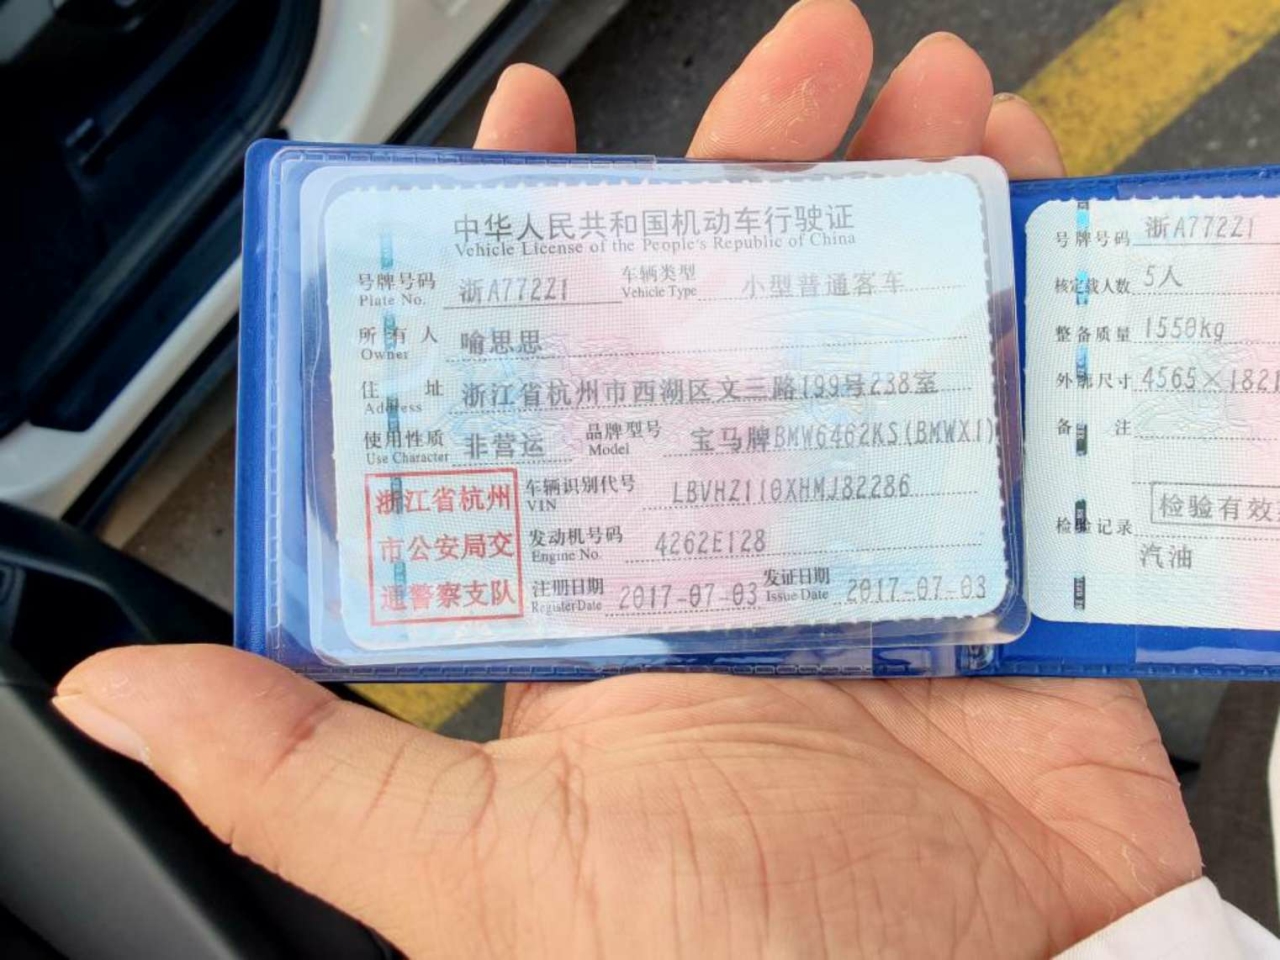 中华人民共和国机动车行驶证
Vehicle License of the People's Republic of China
号牌号码 浙A772Z1 车辆类型 小型普通客车
Plate No. Vehicle Type
所有人 喻思思
Owner
住址 浙江省杭州市西湖区文三路199号238室
Address
使用性质 非营运 品牌型号 宝马牌BMW6462KS(BMWX1)
Use Character Model
浙江省杭州
市公安局交
通警察支队
车辆识别代号 LBVHZ110XHMJ82286
VIN
发动机号码 4262E128
Engine No.
注册日期 2017-07-03 发证日期 2017-07-03
Register Date Issue Date
号牌号码 浙A772Z1
核定载人数 5人
整备质量 1550kg
外廓尺寸 4565×1821
备注
检验有效
检验记录
汽油